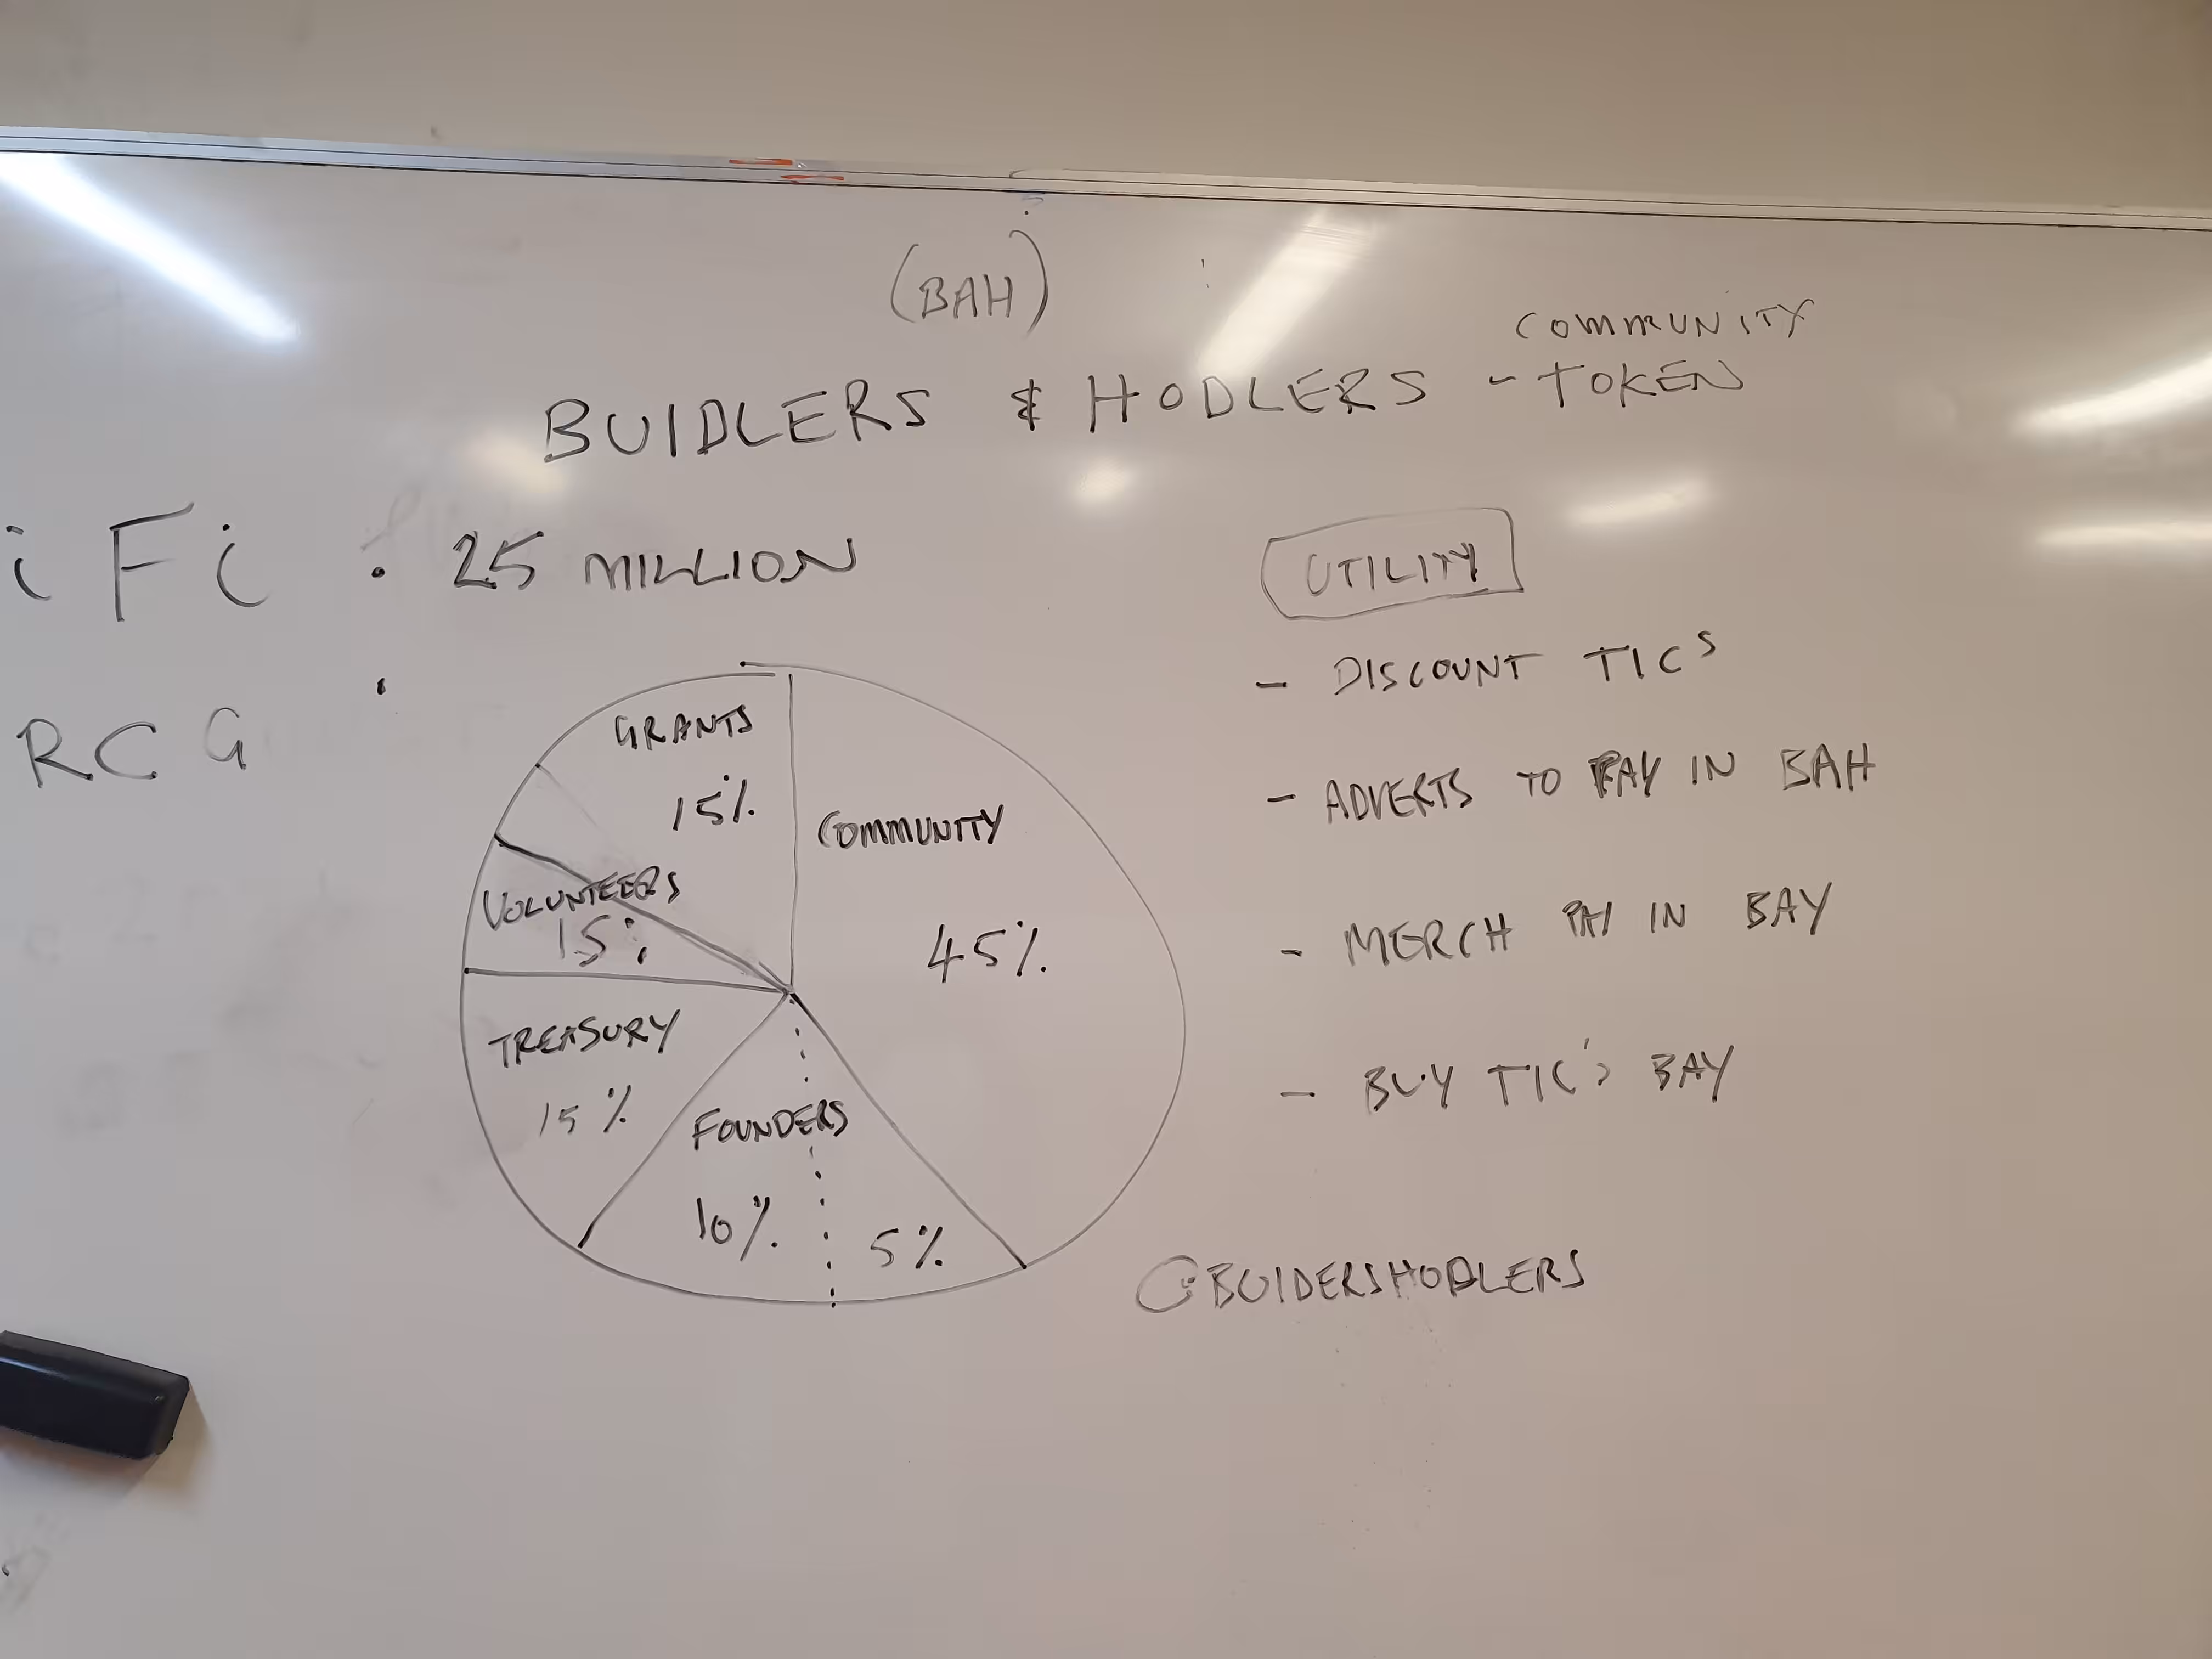 (BAH)
COMMUNITY
BUIDLERS & HODLERS - TOKEN
iFi : 25 MILLION
RCG
GRANTS
15%
COMMUNITY
45%
VOLUNTEERS
15%
TREASURY
15%
FOUNDERS
10%
5%
UTILITY
- DISCOUNT TICS
- ADVERTS TO PAY IN BAH
- MERCH PAY IN BAY
- BUY TIC'S BAY
@BUIDERSHODLERS